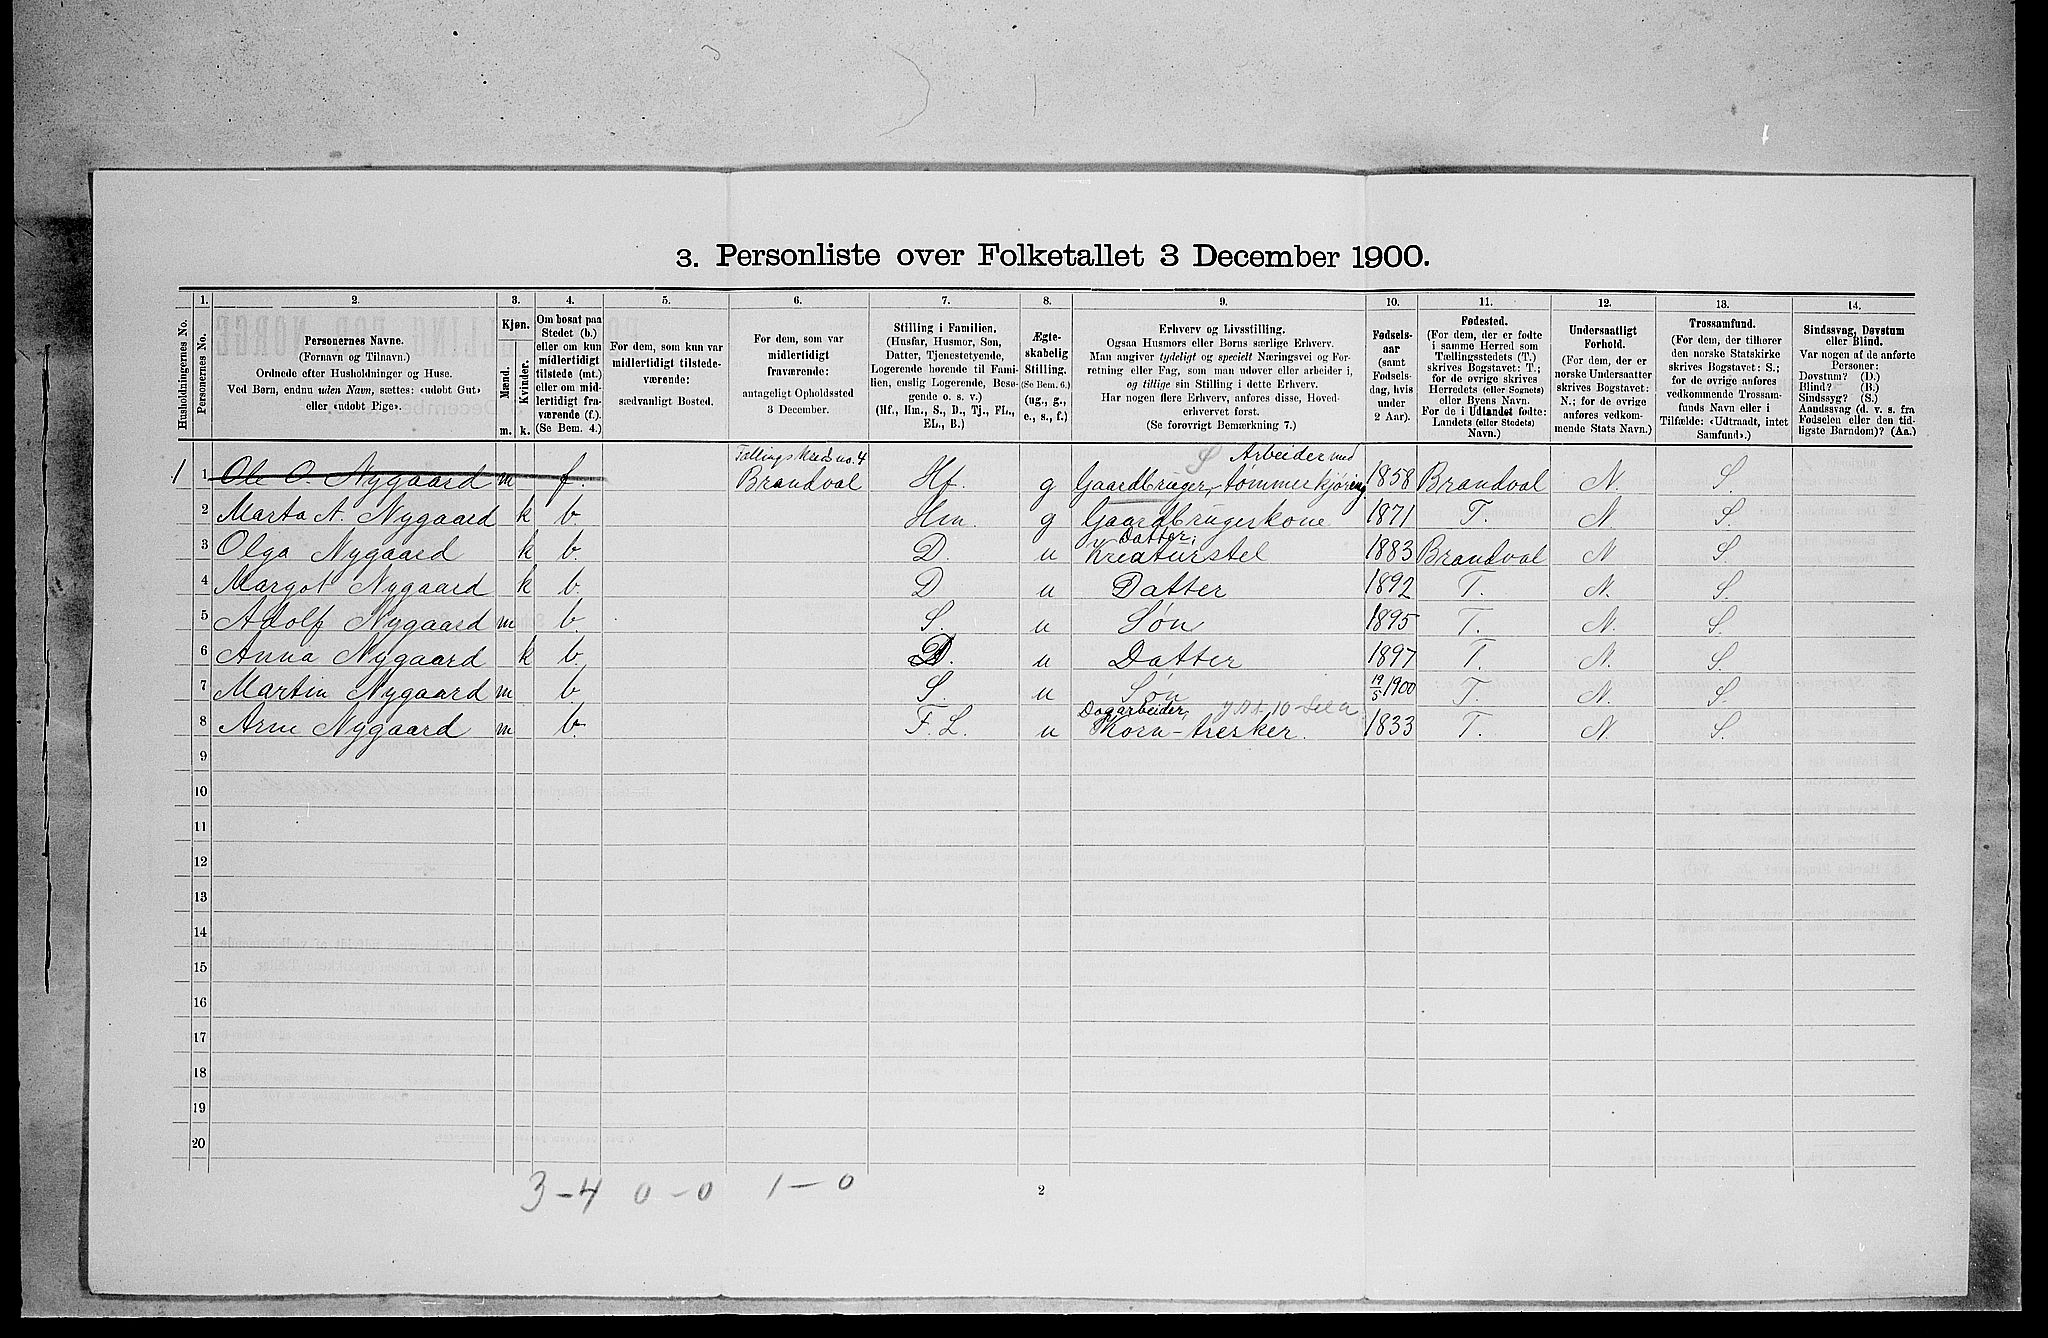 3. Personliste over Folketallet 3 December 1900.
1. 2. 3. 4. 5. 6. 7. 8. 9. 10. 11. 12. 13. 14.
Husholdningernes No.
Personernes No.
Personernes Navne.
(Fornavn og Tilnavn.)
Ordnede efter Husholdninger og Huse.
Ved Børn, endnu uden Navn, sættes: «udøbt Gut»
eller «udøbt Pige».
Kjøn.
Mænd.
Kvinder.
m. k.
Om bosat paa
Stedet (b.)
eller om kun
midlertidigt
tilstede (mt.)
eller om mid-
lertidigt fra-
værende (f.)
(Se Bem. 4.)
For dem, som kun var
midlertidigt tilstede-
værende:
sædvanligt Bosted.
For dem, som var
midlertidigt
fraværende:
antageligt Opholdssted
3 December.
Stilling i Familien.
(Husfar, Husmor, Søn,
Datter, Tjenestetyende,
Logerende hørende til Fami-
lien, enslig Logerende, Besø-
gende o. s. v.)
(Hf., Hm., S., D., Tj., FL.,
EL., B.)
Ægte-
skabelig
Stilling.
(Se Bem. 6.)
(ug., g.,
e., s., f.)
Erhverv og Livsstilling.
Ogsaa Husmors eller Børns særlige Erhverv.
Man angiver tydeligt og specielt Næringsvei og For-
retning eller Fag, som man udøver eller arbeider i,
og tillige sin Stilling i dette Erhverv.
Har nogen flere Erhverv, anføres disse, Hoved-
erhvervet først.
(Se forøvrigt Bemærkning 7.)
Fødsels-
aar
(samt
Fødsels-
dag, hvis
under
2 Aar).
Fødested.
(For dem, der er fødte
i samme Herred som
Tællingsstedets (T.)
skrives Bogstavet: T.;
for de øvrige skrives
Herredets (eller Sognets)
eller Byens Navn.
For de i Udlandet fødte:
Landets (eller Stedets)
Navn.)
Undersaatligt
Forhold.
(For dem, der er
norske Undersaatter
skrives Bogstavet:
N.; for de øvrige
anføres vedkom-
mende Stats Navn.)
Trossamfund.
(For dem, der tilhører
den norske Statskirke
skrives Bogstavet: S.;
for de øvrige anføres
vedkommende Trossam-
funds Navn eller i
Tilfælde: «Udtraadt, intet
Samfund».)
Sindssvag, Døvstum
eller Blind.
Var nogen af de anførte
Personer:
Døvstum? (D.)
Blind? (B.)
Sindssyg? (S.)
Aandssvag (d. v. s. fra
Fødselen eller den tid-
ligste Barndom)? (Aa.)
Tællingskreds no. 4 S Arbeider med
1 1 Ole O. Nygaard m f. Brandval Hf. g Gaardbruger, tømmerkjøring 1858 Brandval N. S.
2 Marta A. Nygaard k b. Hm. g Gaardbrugerkone 1871 T. N. S.
Datter,
3 Olga Nygaard k b. D. u Kreaturstel 1883 Brandval N S.
4 Margot Nygaard k b. D u Datter 1892 T. N. S.
5 Adolf Nygaard m b. S. u Søn 1895 T. N. S.
6 Anna Nygaard k b. D. u Datter 1897 T. N. S.
7 Martin Nygaard m b. S. u Søn 19/5 1900 T. N. S.
Dagarbeider,
8 Arne Nygaard m b. F. L. u Korn-tresker. 1833 T. N. S.
9
10
11
12
13
14
15
16
17
18
19
20
3 – 4 0 – 0 1 – 0
2